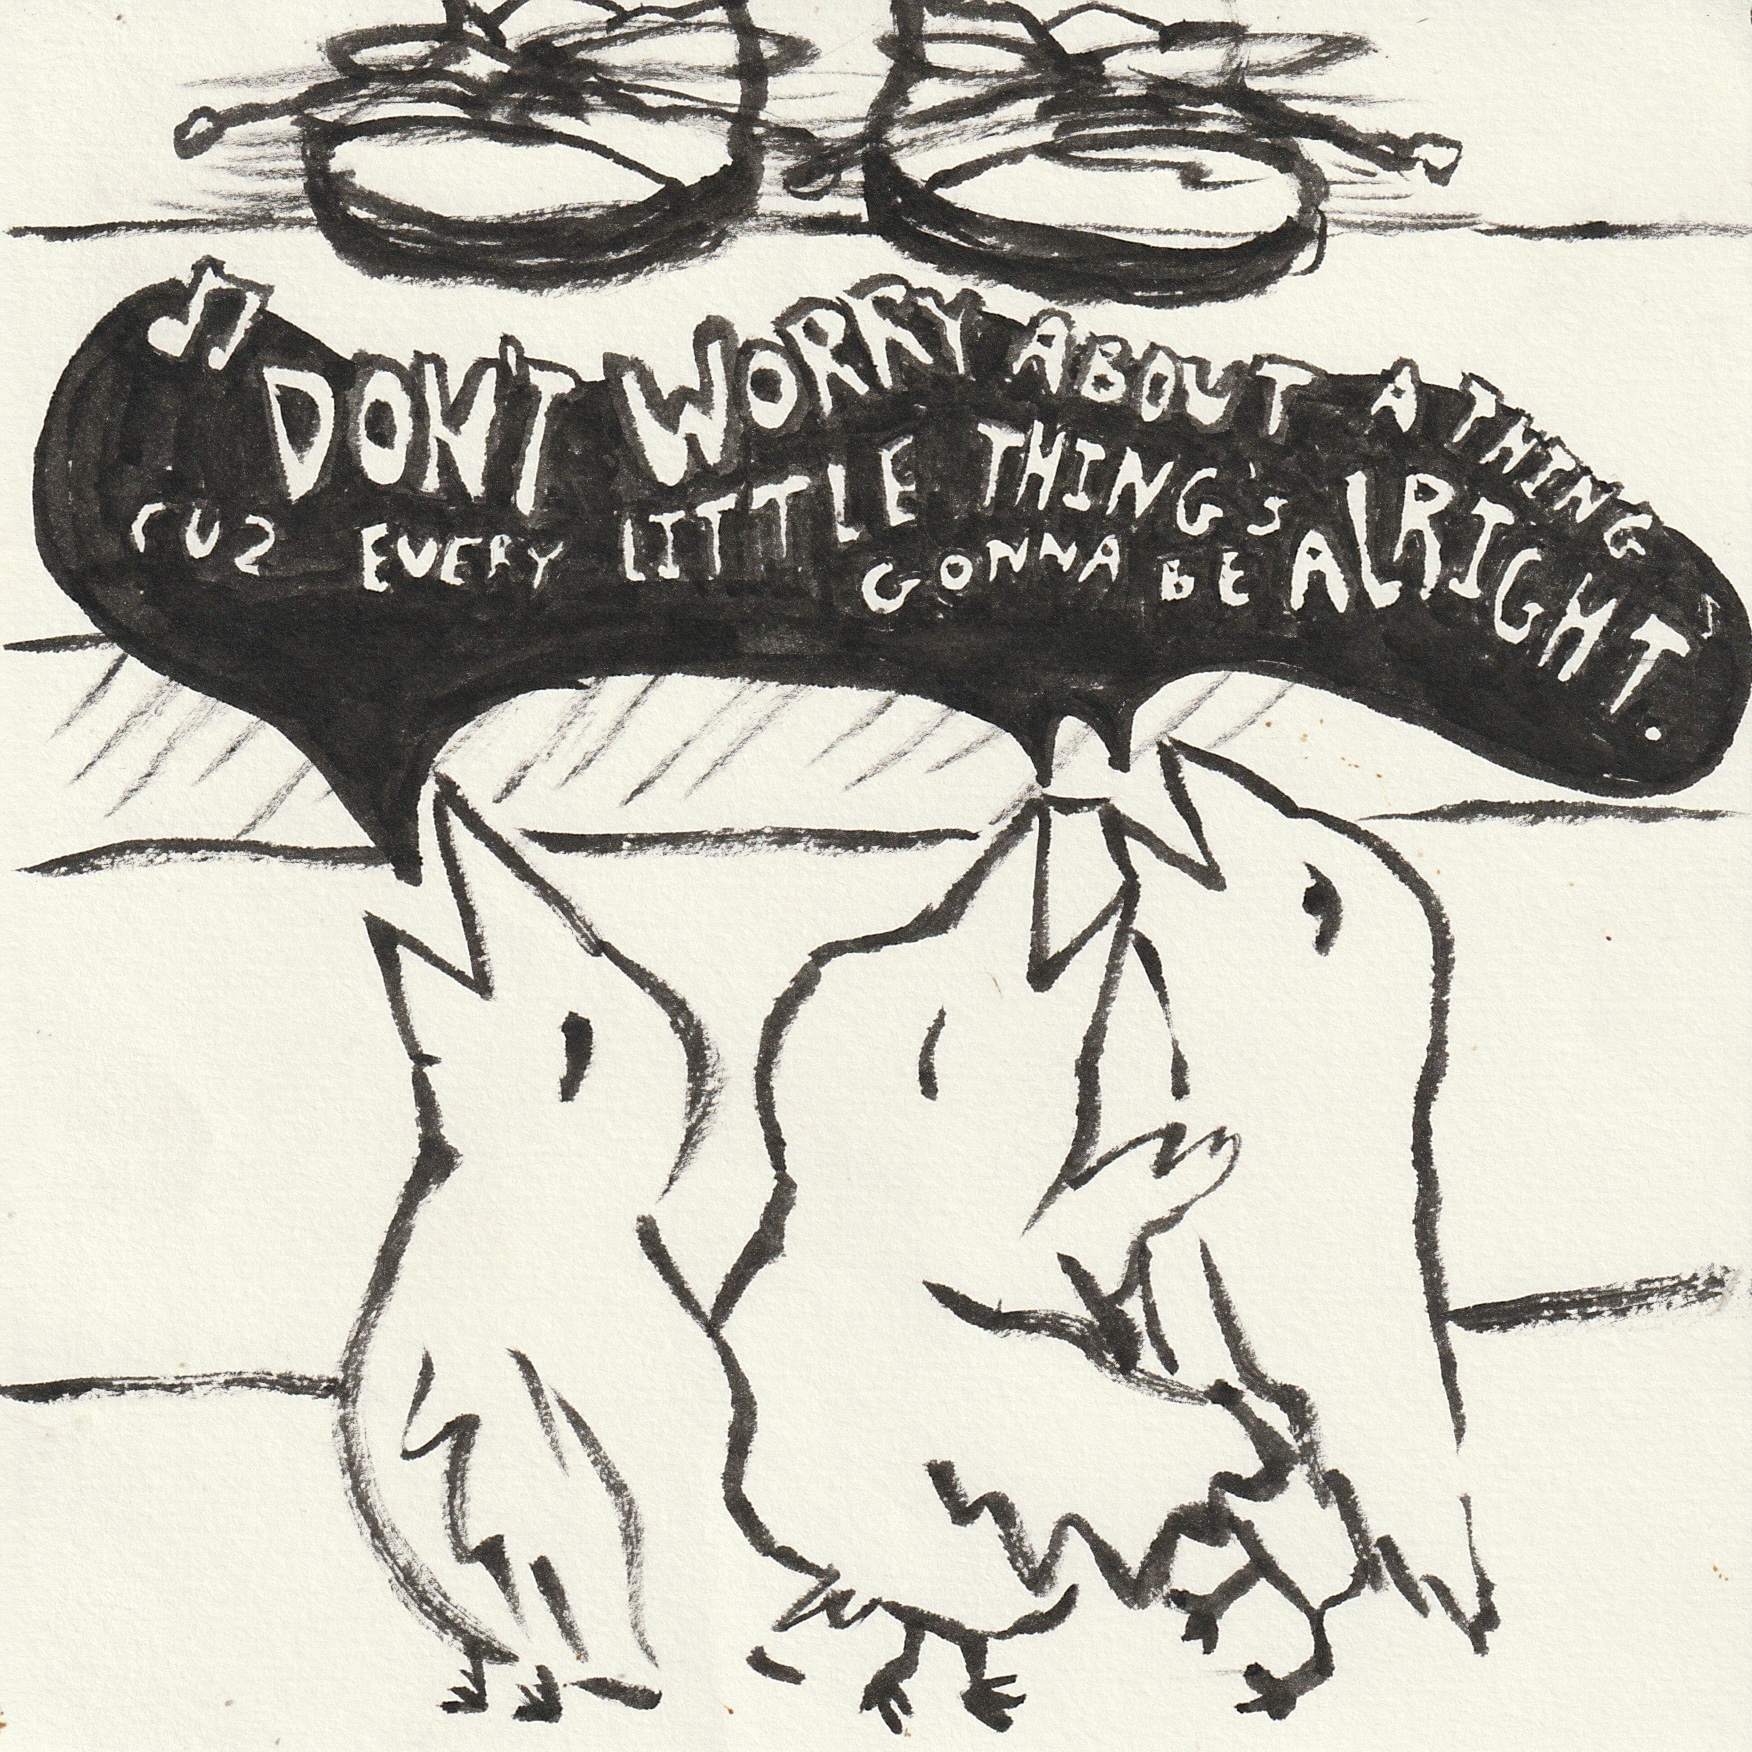 ♫ DON'T WORRY ABOUT A THING
CUZ EVERY LITTLE THING'S
GONNA BE ALRIGHT.